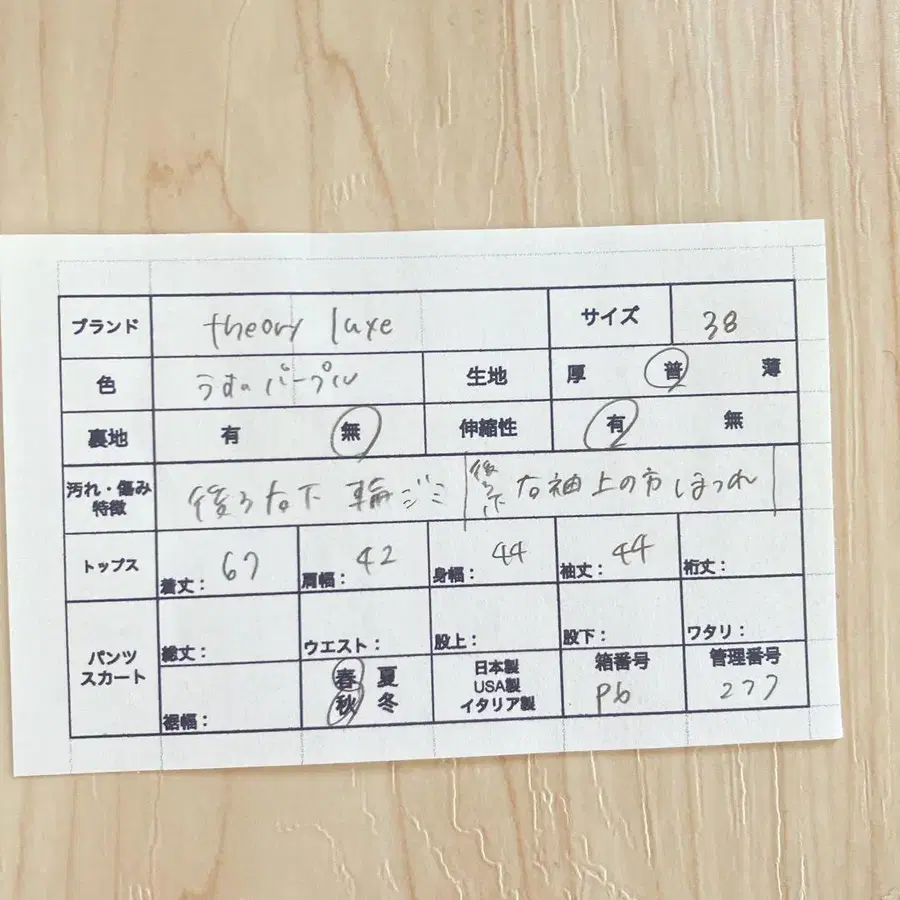 ブランド theory luxe サイズ 38
色 うすいパープル 生地 厚 普 薄
裏地 有 無 伸縮性 有 無
汚れ・傷み 後ろ右下 輪ジミ 右袖上の方 ほつれ
特徴
トップス 着丈: 67 肩幅: 42 身幅: 44 袖丈: 44 裄丈:
パンツ スカート
総丈: ウエスト: 股上: 股下: ワタリ:
裾幅: 春 夏 秋 冬
日本製
USA製
イタリア製
箱番号 管理番号
P6 277